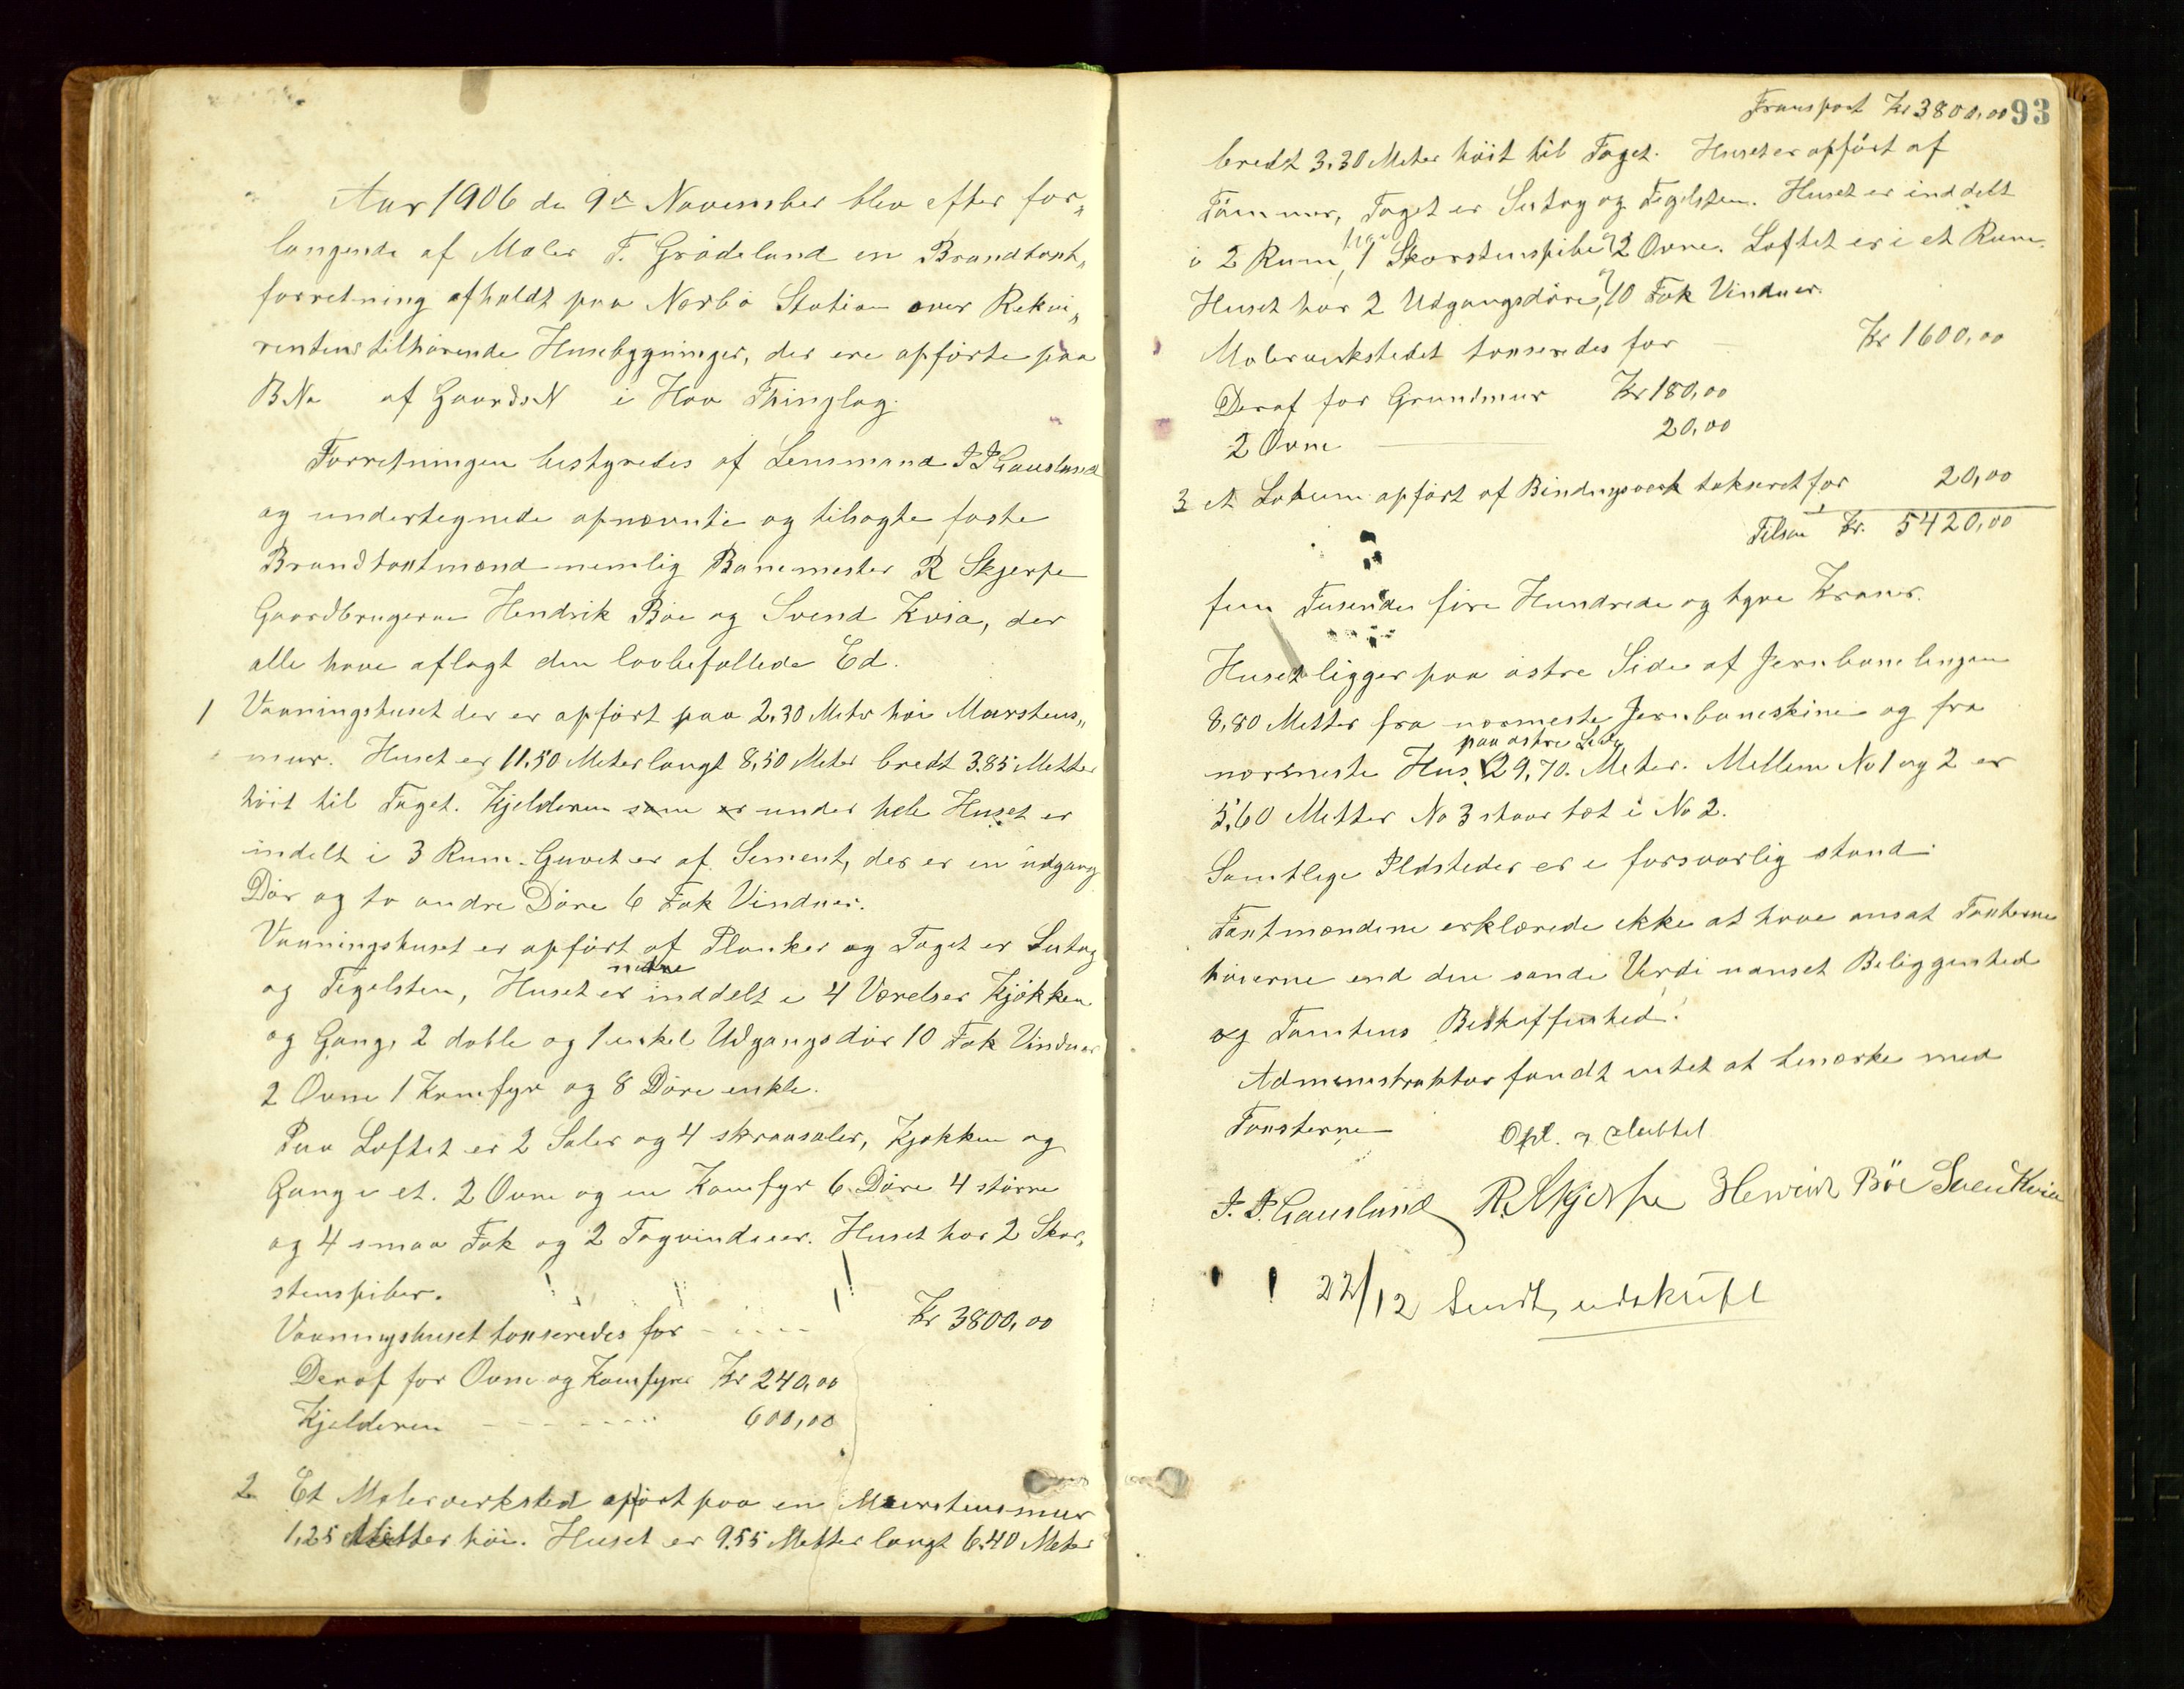 Aar 1906 de 9de November blev efter for„
langende af Maler T. Grødeland en Brandtaxt„
forretning afholdt paa Nærbø Station over Rekvi„
rentens tilhørende Husebygninger, der ere opførte paa
BNo af GaardsN i Haa Thinglag.
Forretningen bestyredes af Lensmand J P Gausland
og undertegnede opnævnte og tilsagte faste
Brandtaxtmænd nemlig Banemester R Skjerpe
Gaardbrugerne Hendrik Bøe og Svend Kvia, der
alle have aflagt den lovbefallede Ed.
1 Vaaningshuset der er opført paa 2,30 Meter høi Murstens„
mur. Huset er 11,50 Meter langt 8,50 Meter bredt 3.85 Metter
høit til Taget. Kjelderen som er under hele Huset er
indelt i 3 Rum. Guvet er af Sement, der er en udgang
Dør og to andre Døre 6 Fak Vinduer.
Vaaningshuset er opført af Planker og Taget er Sutag
og Tegelsten, Huset er nedre inddelt i 4 Værelser Kjøkken
og Gang, 2 doble og 1 enkel Udgangsdør 10 Fak Vinduer
2 Ovne 1 Komfyr og 8 Døre enkle.
Paa Loftet er 2 Saler og 4 skraasaler, Kjøkken og
Gang i et. 2 Ovne og en Komfyr 6 Døre 4 større
og 4 smaa Fak og 2 Tagvinduer. Huset har 2 Skor„
stenspiber.
Vaaningshuset taxseredes for - - - - Kr 3800,00
Deraf for Ovne og Komfyre Kr 240,00
Kjelderen - - - - - - - 600,00
2 Et Malerverksted opført paa en Murstensmur
1,25 Metter høi. Huset er 9.55 Metter langt 6.40 Meter
Transport Kr 3800,00 93
bredt 3.30 Meter høit til Taget. Huset er opført af
Tømmer, Taget er Sutag og Tegelsten. Huset er inddelt
i 2 Rum, har 1 Skorstenspibe og 2 Ovne. Loftet er i et Rum.
Huset har 2 Udgangsdøre, og 10 Fak Vinduer.
Malerverkstedet taxseredes for - Kr 1600,00
Deraf for Grundmur Kr 180,00
2 Ovne 20,00
3 et Lokum opført af Bindingsværk takseret for 20,00
Tilsm Kr. 5420,00
fem Tusender fire Hundrede og tyve Kroner.
Huset ligger paa østre Side af Jernbanelingen
8,80 Metter fra nærmeste Jernbaneskine og fra
nærmeste Hus paa østre Side 29,70. Meter. Mellem No 1 og 2 er
5,60 Metter No 3 staar tæt i No 2.
Samtlige Ildsteder er i forsvarlig stand.
Taxtmændene erklærede ikke at have ansat Taxterne
høierne end den sande Verdi uanset Beliggenhed
og Tomtens Beskaffenhed.
Administraktor fandt intet at bemærke med
Taxsterne Opl. & vedtat
J. P. Gausland R. Skjerpe Henrik Bøe Svend Kvia
22/12 Sendt, udskrift